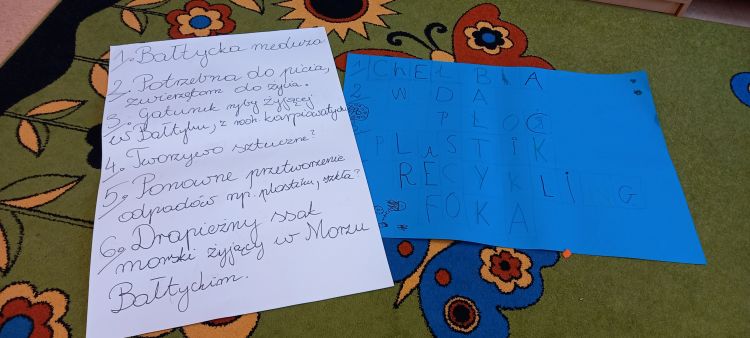 1. Bałtycka meduza
2. Potrzebna do picia,
zwierzętom do życia.
3. Gatunek ryby żyjącej
w Bałtyku, z rodz. karpiowatych
4. Tworzywo sztuczne?
5. Ponowne przetworzenie
odpadów np. plastiku, szkła?
6. Drapieżny ssak
morski żyjący w Morzu
Bałtyckim.
1 ChEŁBIA
2 WODA
PŁOĆ
PLaSTiK
RECYKLiNG
FOKA